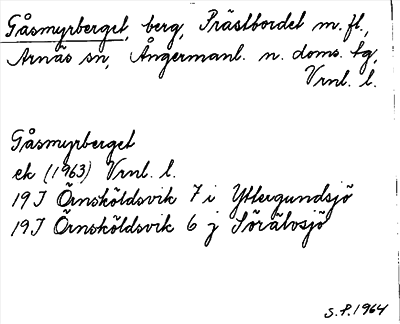 Gåsmyrberget, berg, Prästbordet m. fl.,
Arnäs sn, Ångermanl. n. doms. tg,
Vrnl. l.
Gåsmyrberget
ek (1963) Vrnl. l.
19J Örnsköldsvik 7 i Yttergundsjö
19J Örnsköldsvik 6 j Sörälvsjö
S.P. 1964